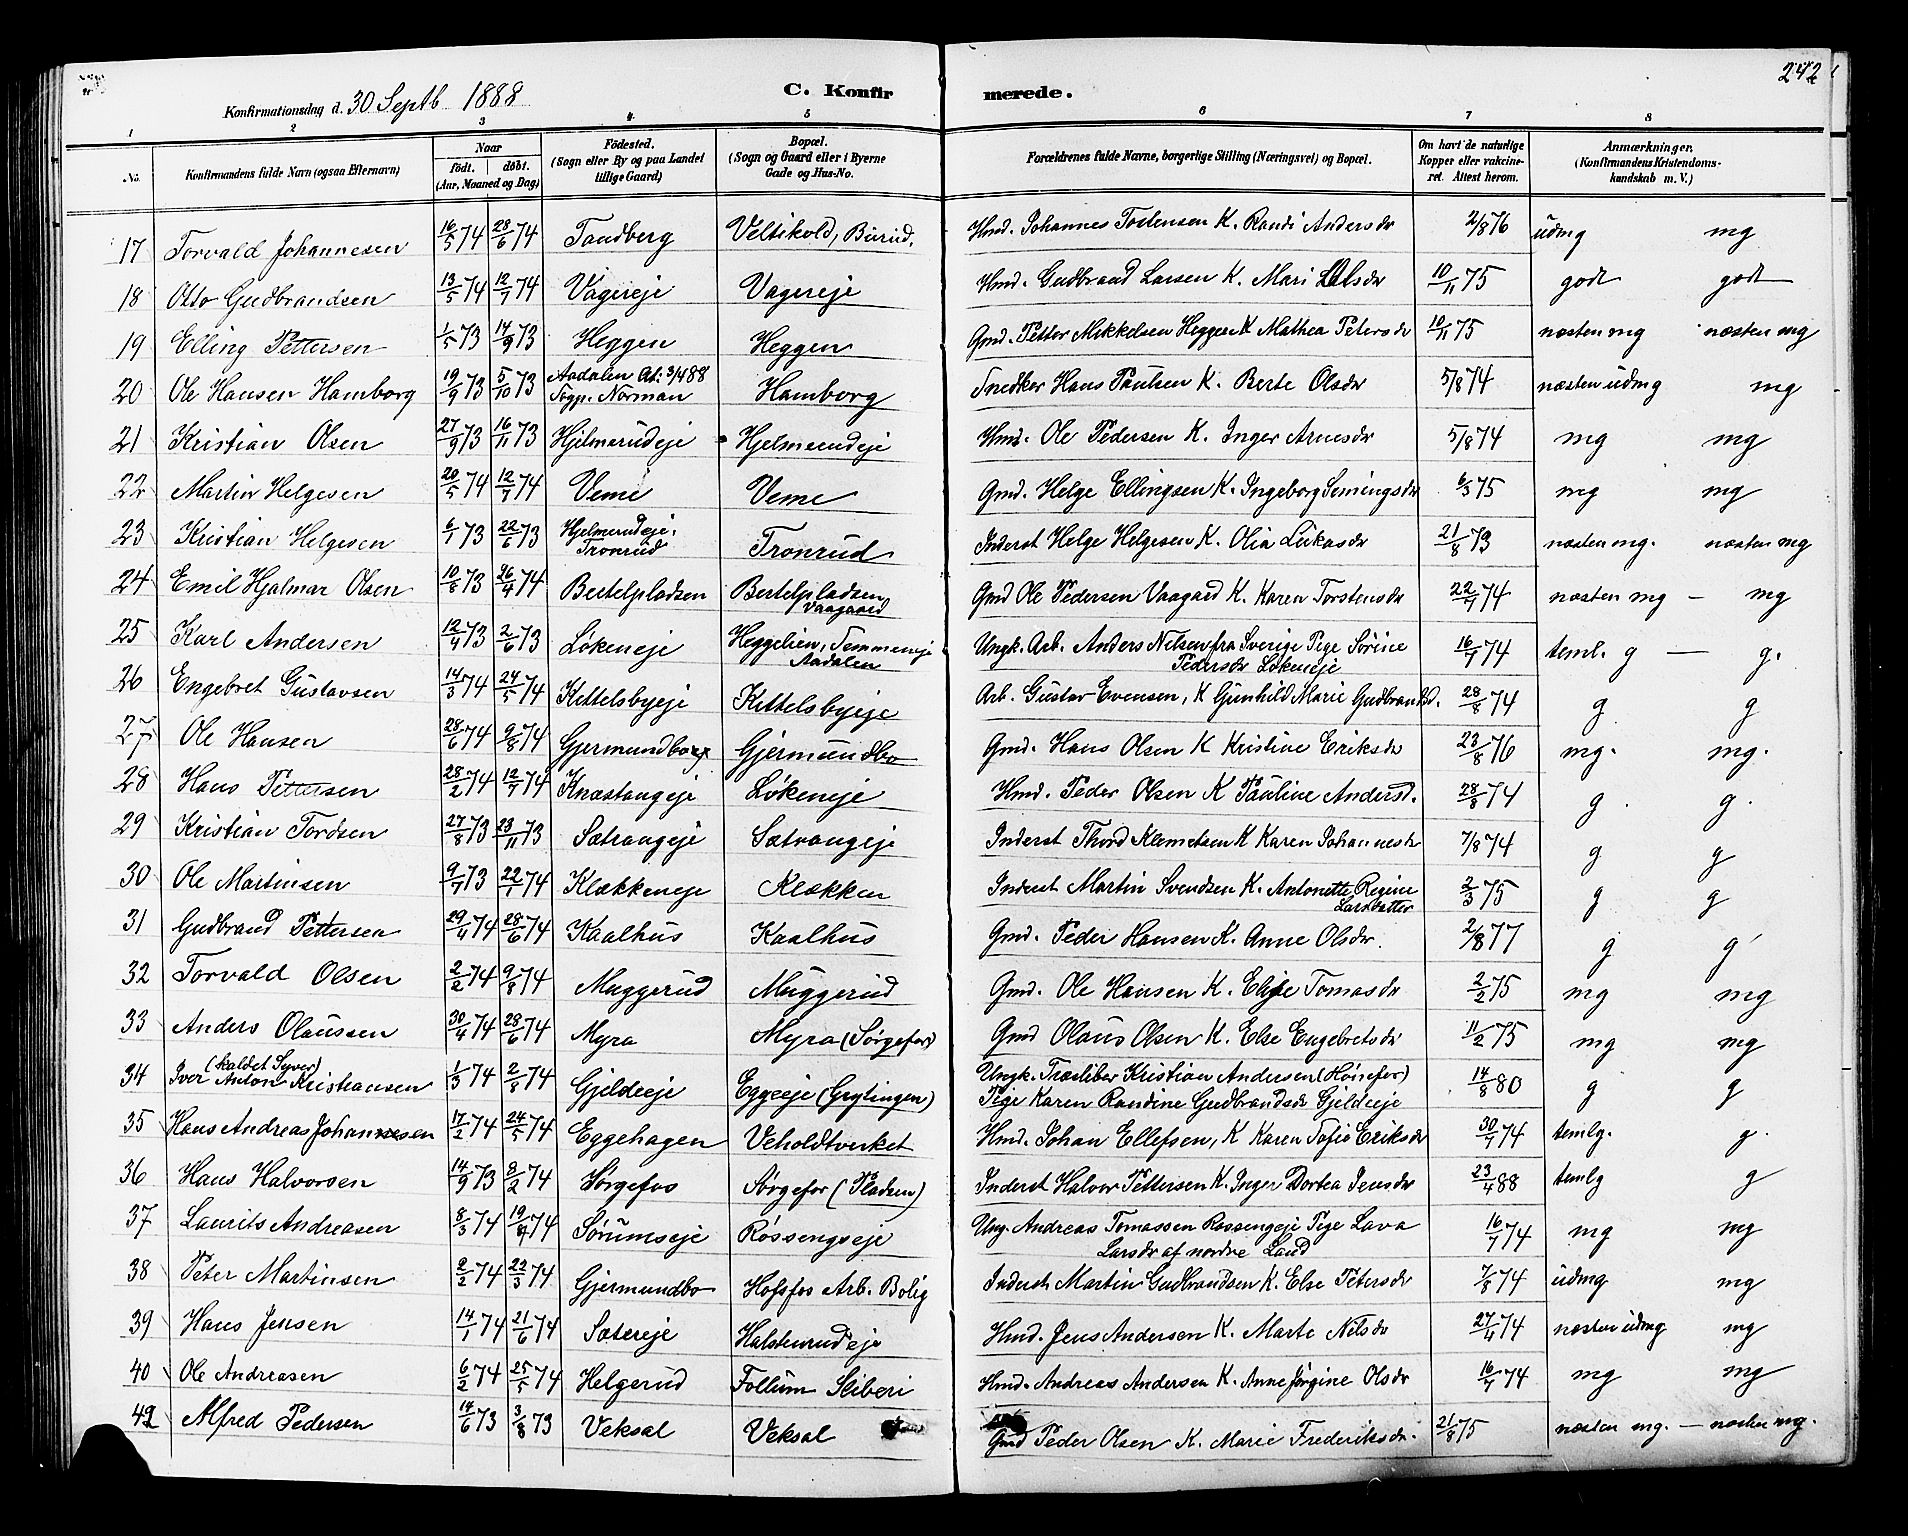 242
Konfirmationsdag d. 30 Septb 1888
C. Konfirmerede.
1 2 3 4 5 6 7 8
No. Konfirmandens fulde Navn (ogsaa Efternavn) Naar født. døbt. (Aar, Maaned og Dag) Fødested. (Sogn eller By og paa Landet tillige Gaard) Bopæl. (Sogn og Gaard eller i Byerne Gade og Hus-No. Forældrenes fulde Navne, borgerlige Stilling (Næringsvei) og Bopæl. Om havt de naturlige Kopper eller vakcineret. Attest herom. Anmærkninger. (Konfirmandens Kristendomskundskab m. V.)
17 Torvald Johannesen 16/5 74 28/6 74 Tandberg Veltikold, Burud. Hmd. Johannes Tostensen K. Randi Andersdr 2/8 76 udmg mg
18 Otto Gudbrandsen 13/5 74 12/7 74 Vågereje Vagereje Hmd. Gudbrand Larsen K. Mari Olsdr 10/11 75 godt godt
19 Elling Pettersen 1/5 73 14/9 73 Heggen Heggen Gmd. Petter Mikkelsen Heggen K Mathea Petersdr 10/11 75 næsten mg næsten mg
20 Ole Hansen Hamborg 19/9 73 5/10 73 Aadalen At: 3/4 88 Sogp. Norman Hamborg Snedker Hans Paulsen K. Berte Olsdr 5/8 74 næsten udmg mg
21 Kristian Olsen 27/9 73 16/11 73 Hjelmerudeje Hjelmerudeje Hmd. Ole Pedersen K. Inger Arnesdr 5/8 74 mg mg
22 Martin Helgesen 20/5 74 12/7 74 Veme Veme Gmd. Helge Ellingsen K. Ingeborg Semingsdr 6/3 75 mg mg
23 Kristian Helgesen 6/1 73 22/6 73 Hjelmerudeje. Tronrud Tronrud Inderst Helge Helgesen K. Olia Lukasdr 21/8 73 næsten mg. næsten mg
24 Emil Hjalmar Olsen 10/8 73 26/4 74 Bertelpladsen Bertelpladsen Vaagaard Gmd Ole Pedersen Vaagaard K. Karen Torstensdr 22/7 74 næsten mg — mg
25 Karl Andersen 12/4 73 2/6 73 Løkeneje Heggelien, Semmeneje Aadalen Ungk. Arb. Anders Nilsen fra Sverige Pige Sørine Pedersdr Løkeneje 16/7 74 teml. g — g.
26 Engebret Gustavsen 14/3 74 24/5 74 Kittelsbyeje Kittelsbyeje Arb. Gustav Evensen, K Gunhild Marie Gudbrandsd. 28/8 74 g g
27 Ole Hansen 28/6 74 9/8 74 Gjermundbo Gjermundbo Gmd. Hans Olsen K Kristine Eriksdr 23/8 76 mg. mg.
28 Hans Pettersen 28/2 74 12/7 74 Knæstangeje Løkeneje Hmd. Peder Olsen K Pauline Andersd. 28/8 74 g. g.
29 Kristian Tordsen 27/8 73 23/11 73 Sætrangeje Sætrangeje Inderst Thord Klemetsen K Karen Johannesdr 7/8 74 g g
30 Ole Martinsen 9/7 73 22/1 74 Klækkeneje Klækken Inderst Martin Svendsen K. Antonette Regine Larsdatter 2/3 75 g g
31 Gudbrand Pettersen 29/4 74 28/6 74 Kaalhus Kaalhus Gmd. Peder Hansen K. Anne Olsdr. 2/8 77 g g
32 Torvald Olsen 2/2 74 9/8 74 Muggerud Muggerud Gmd. Ole Hansen K. Elise Tomasdr 2/2 75 mg mg
33 Anders Olaussen 30/4 74 28/6 74 Myra Myra (Sørgefos) Gmd Olaus Olsen K. Else Engebretsdr 11/2 75 mg mg
34 Iver (kaldet Syver) Anton Kristiansen 1/3 74 2/8 74 Gjeldeeje Eggeeje (Grytingen) Ungk. Træsliber Kristian Andersen (Hønefos) Pige Karen Randine Gudbrandsdr Gjeldeeje 14/8 80 g g
35 Hans Andreas Johannesen 17/2 74 24/5 74 Eggehagen Veholdtverket Hmd. Johan Ellefsen, K Karen Sofie Eriksdr 30/7 74 temlg. g.
36 Hans Halvorsen 14/9 73 8/2 74 Hørgefos Sørgefos (Pladsen) Inderst Halvor Pettersen K. Inger Dortea Jensdr 23/4 88 temlg g
37 Laurits Andreasen 8/3 74 19/7 74 Sørumseje Røssengseje Ung. Andreas Tomassen Røssengeje Pige Lava Larsdr af nordre Land 16/7 74 mg mg
38 Peter Martinsen 2/2 74 22/3 74 Gjermundbo Hofsfos Arb. Bolig Inderst Martin Gudbrandsen K. Else Petersdr 7/8 74 udmg mg
39 Hans Jensen 14/1 74 21/6 74 Sætereje Halstenrudeje Hmd. Jens Andersen K. Marte Nilsdr 27/4 74 næsten udmg mg
40 Ole Andreasen 6/2 74 25/5 74 Helgerud Follum Sliberi Hmd. Andreas Andersen K. Anne Jørgine Olsdr 16/7 74 mg mg
42 Alfred Pedersen 14/6 73 3/8 73 Veksal Veksal Gmd Peder Olsen K. Marie Frederiksdr. 21/8 75 næsten mg. — næsten mg.